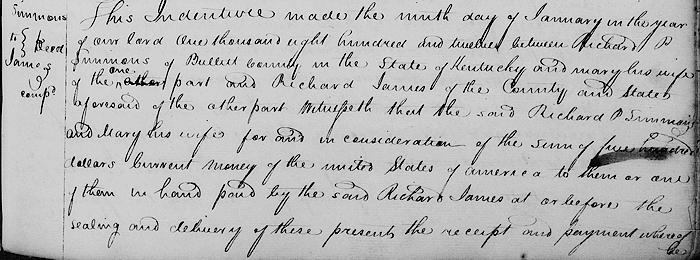 Simmons
to } Deed
James
&
comp.d
This Indenture made the ninth day of January in the year
of our lord One thousand eight hundred and twelve between Richard P
Simmons of Bullitt County in the State of Kentucky and mary his wife
of the one other part and Richard James of the County and State
aforesaid of the other part Witnesseth that the said Richard P Simmons
and Mary his wife for and in consideration of the sum of five hundred
dollars Current money of the united States of america to them or one
of them in hand paid by the said Richard James at or before the
sealing and delivery of these presents the receipt and payment whereof